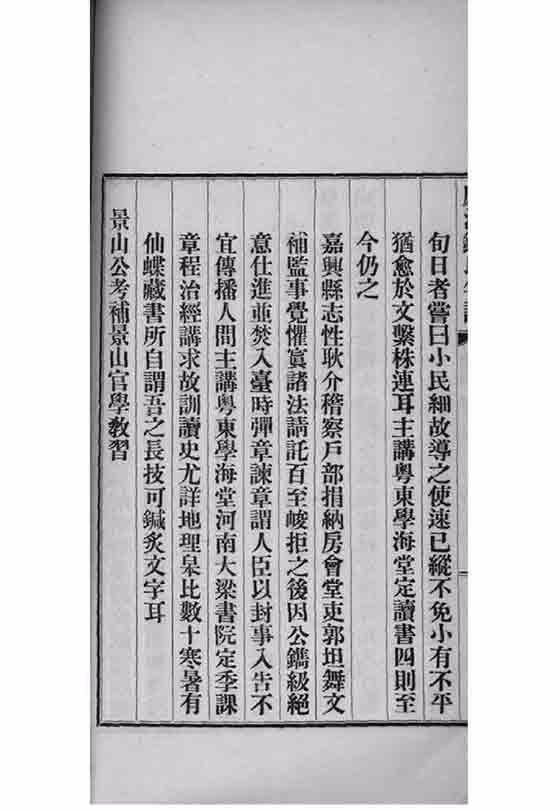 旬日者嘗曰小民細故導之使速已縱不免小有不平
猶愈於文繫株連耳主講粵東學海堂定讀書四則至
今仍之
嘉興縣志性耿介稽察戸部捐納房會堂吏郭坦舞文
補監事覺懼寘諸法請託百至峻拒之後因公鐫級絕
意仕進並焚入臺時彈章諫章謂人臣以封事入告不
宜傳播人間主講粵東學海堂河南大梁書院定季課
章程治經講求故訓讀史尤詳地理皋比數十寒暑有
仙蝶藏書所自謂吾之長技可鍼炙文字耳
景山公考補景山官學敎習